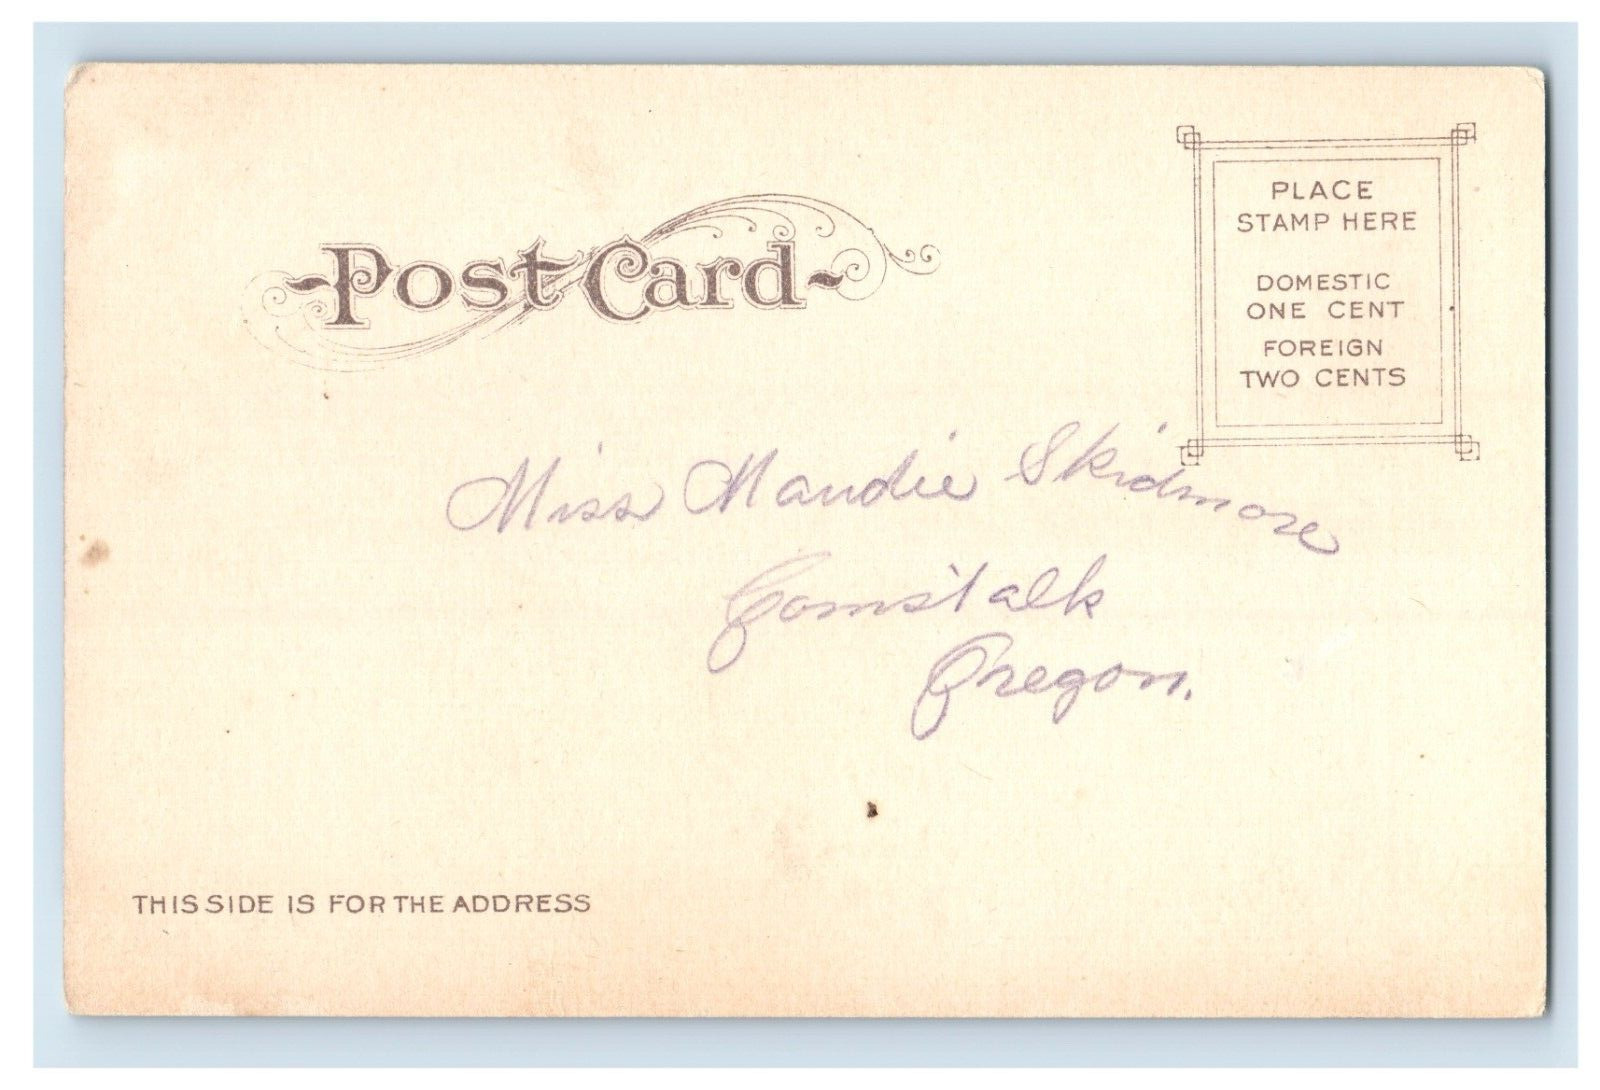 Post Card
PLACE
STAMP HERE
DOMESTIC
ONE CENT
FOREIGN
TWO CENTS
Miss Maudie Skidmore
Comstalk
Oregon.
THIS SIDE IS FOR THE ADDRESS